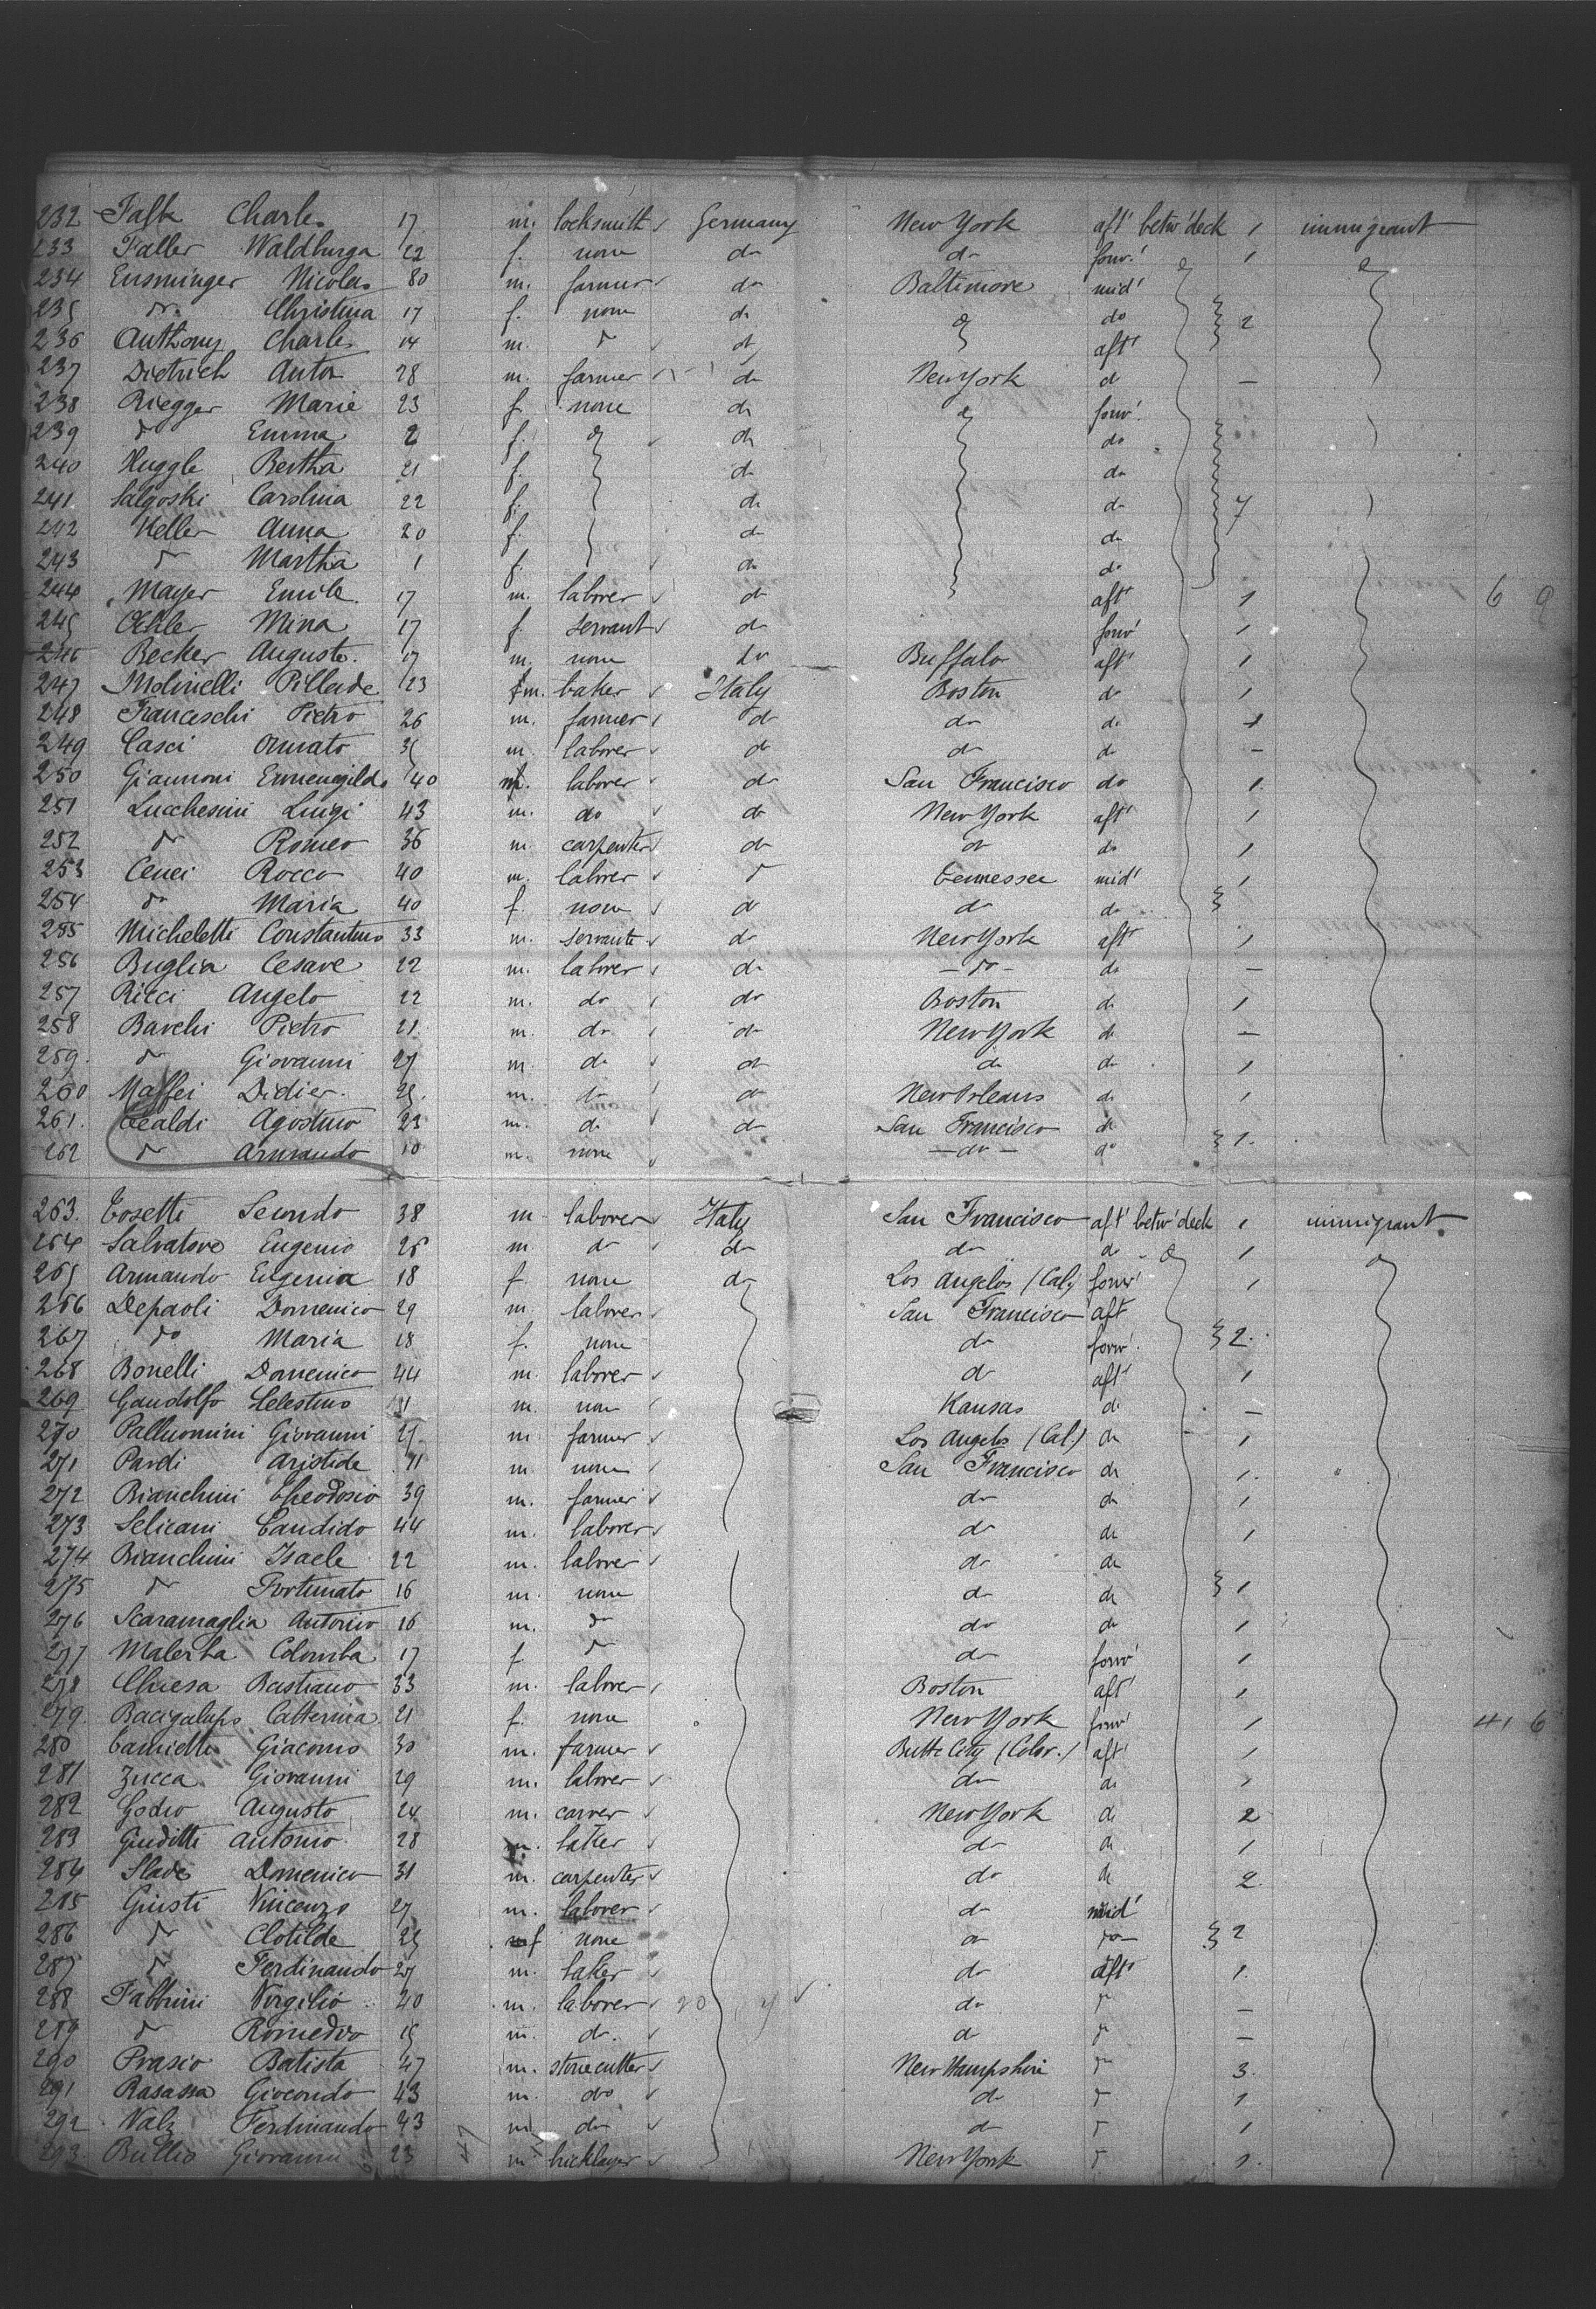 232 Falk Charles 17 m. locksmith Germany New York aft' betw' deck 1 immigrant
233 Faller Waldburga 22 f. none do do forw.' 1
234 Ensminger Nicolas 80 m. farmer do Baltimore mid'
235 do Christina 17 f. none do do 2
236 Anthony Charles 14 m. do do aft'
237 Dietrich Anton 28 m. farmer do New York do —
238 Riegger Marie 23 f. none do do forw.'
239 do Emma 2 f. do do do
240 Huggle Bertha 21 f. do do
241. Salgoski Carolina 22 f. do do 7
242 Keller Anna 20 f. do do
243 do Martha 1 f. do do
244 Mayer Emile 17 m. laborer do aft' 1 6 9
245 Oehler Mina 17 f. servant do forw' 1
246 Becker Auguste. 17 m. none do Buffalo aft' 1
247 Molinelli Pillade 23 m. baker Italy Boston do 1
248 Franceschi Pietro 26 m. farmer do do do 1
249 Casci Onurato 35 m. laborer do do do —
250 Giannoni Ermenegildo 40 m. laborer do San Francisco do 1.
251 Lucchesini Luigi 43 m. do do New York aft' 1
252 do Romeo 36 m. carpenter do do do 1
253 Cenci Rocco 40 m. laborer do Tennessee mid' 1
254 do Maria 40 f. none do do do
255 Micheletti Constantino 33 m. servante do New York aft' 1
256 Buglia Cesare 22 m. laborer do — do — do —
257 Ricci Angelo 22 m. do do Boston do 1
258 Barchi Pietro 21. m. do do New York do —
259. do Giovanni 27 m. do do do do 1
260 Maffei Didier. 25. m. do do New Orleans do 1
261. Cealdi Agostino 23 m. do do San Francisco do
262 do Armando 10 m. none — do — do 1.
263. Tosetti Secondo 38 m laborer Italy San Francisco aft' betw' deck 1 immigrant
264 Salvatore Eugenio 26 m. do do do do 1
265 Armando Eugenia 18 f. none do Los Angelos (Cal) forw' 1
266 Depaoli Domenico 29 m. laborer San Francisco aft
267 do Maria 18 f. none do forw'. 2.
268 Bonelli Domenico 44 m. laborer do aft' 1
269 Gandolfo Selestino 31 m. none Kansas do —
270 Palluomini Giovanni 27. m farmer Los Angelos (Cal.) do 1
271 Pardi Aristide 11 m none San Francisco do 1.
272 Bianchini Theodosio 39 m. farmer do do 1
273 Selicani Candido 44 m. laborer do do 1
274 Bianchini Isaele 22 m. laborer do do
275 do Fortunato 16 m. none do do 1
276 Scaramaglia Antonio 16 m. do do do 1
277 Malerba Colomba 17 f do do forw' 1
278 Chiesa Bastiano 33 m. laborer Boston aft' 1
279. Bacigalupo Catterina. 21 f. none New York forw' 1 41 6
280 Camietti Giacomo 30 m. farmer Butte City (Color.) aft' 1
281 Zucca Giovanni 29 m. laborer do do 1
282 Godio Augusto 24 m. carver New York do 2
283 Giuditti Antonio 28 m. baker do do 1
284 Slade Domenico 31 m. carpenter do do 2.
285 Giusti Vincenzo 27 m. laborer do mid'
286 do Clotilde 25 f none do do 2
287 do Ferdinando 27 m. baker do aft' 1.
288 Fabbrini Virgilio 40 m. laborer do do —
289 do Romedio 15 m. do. do do —
290 Prasio Batista 47 m. stonecutter New Hampshire do 3.
291 Rasassa Giocondo 43 m. do do do 1
292 Valz Ferdinando 43 m do do do 1
293. Bullio Giovanni 23 m bricklayer New York do 1.